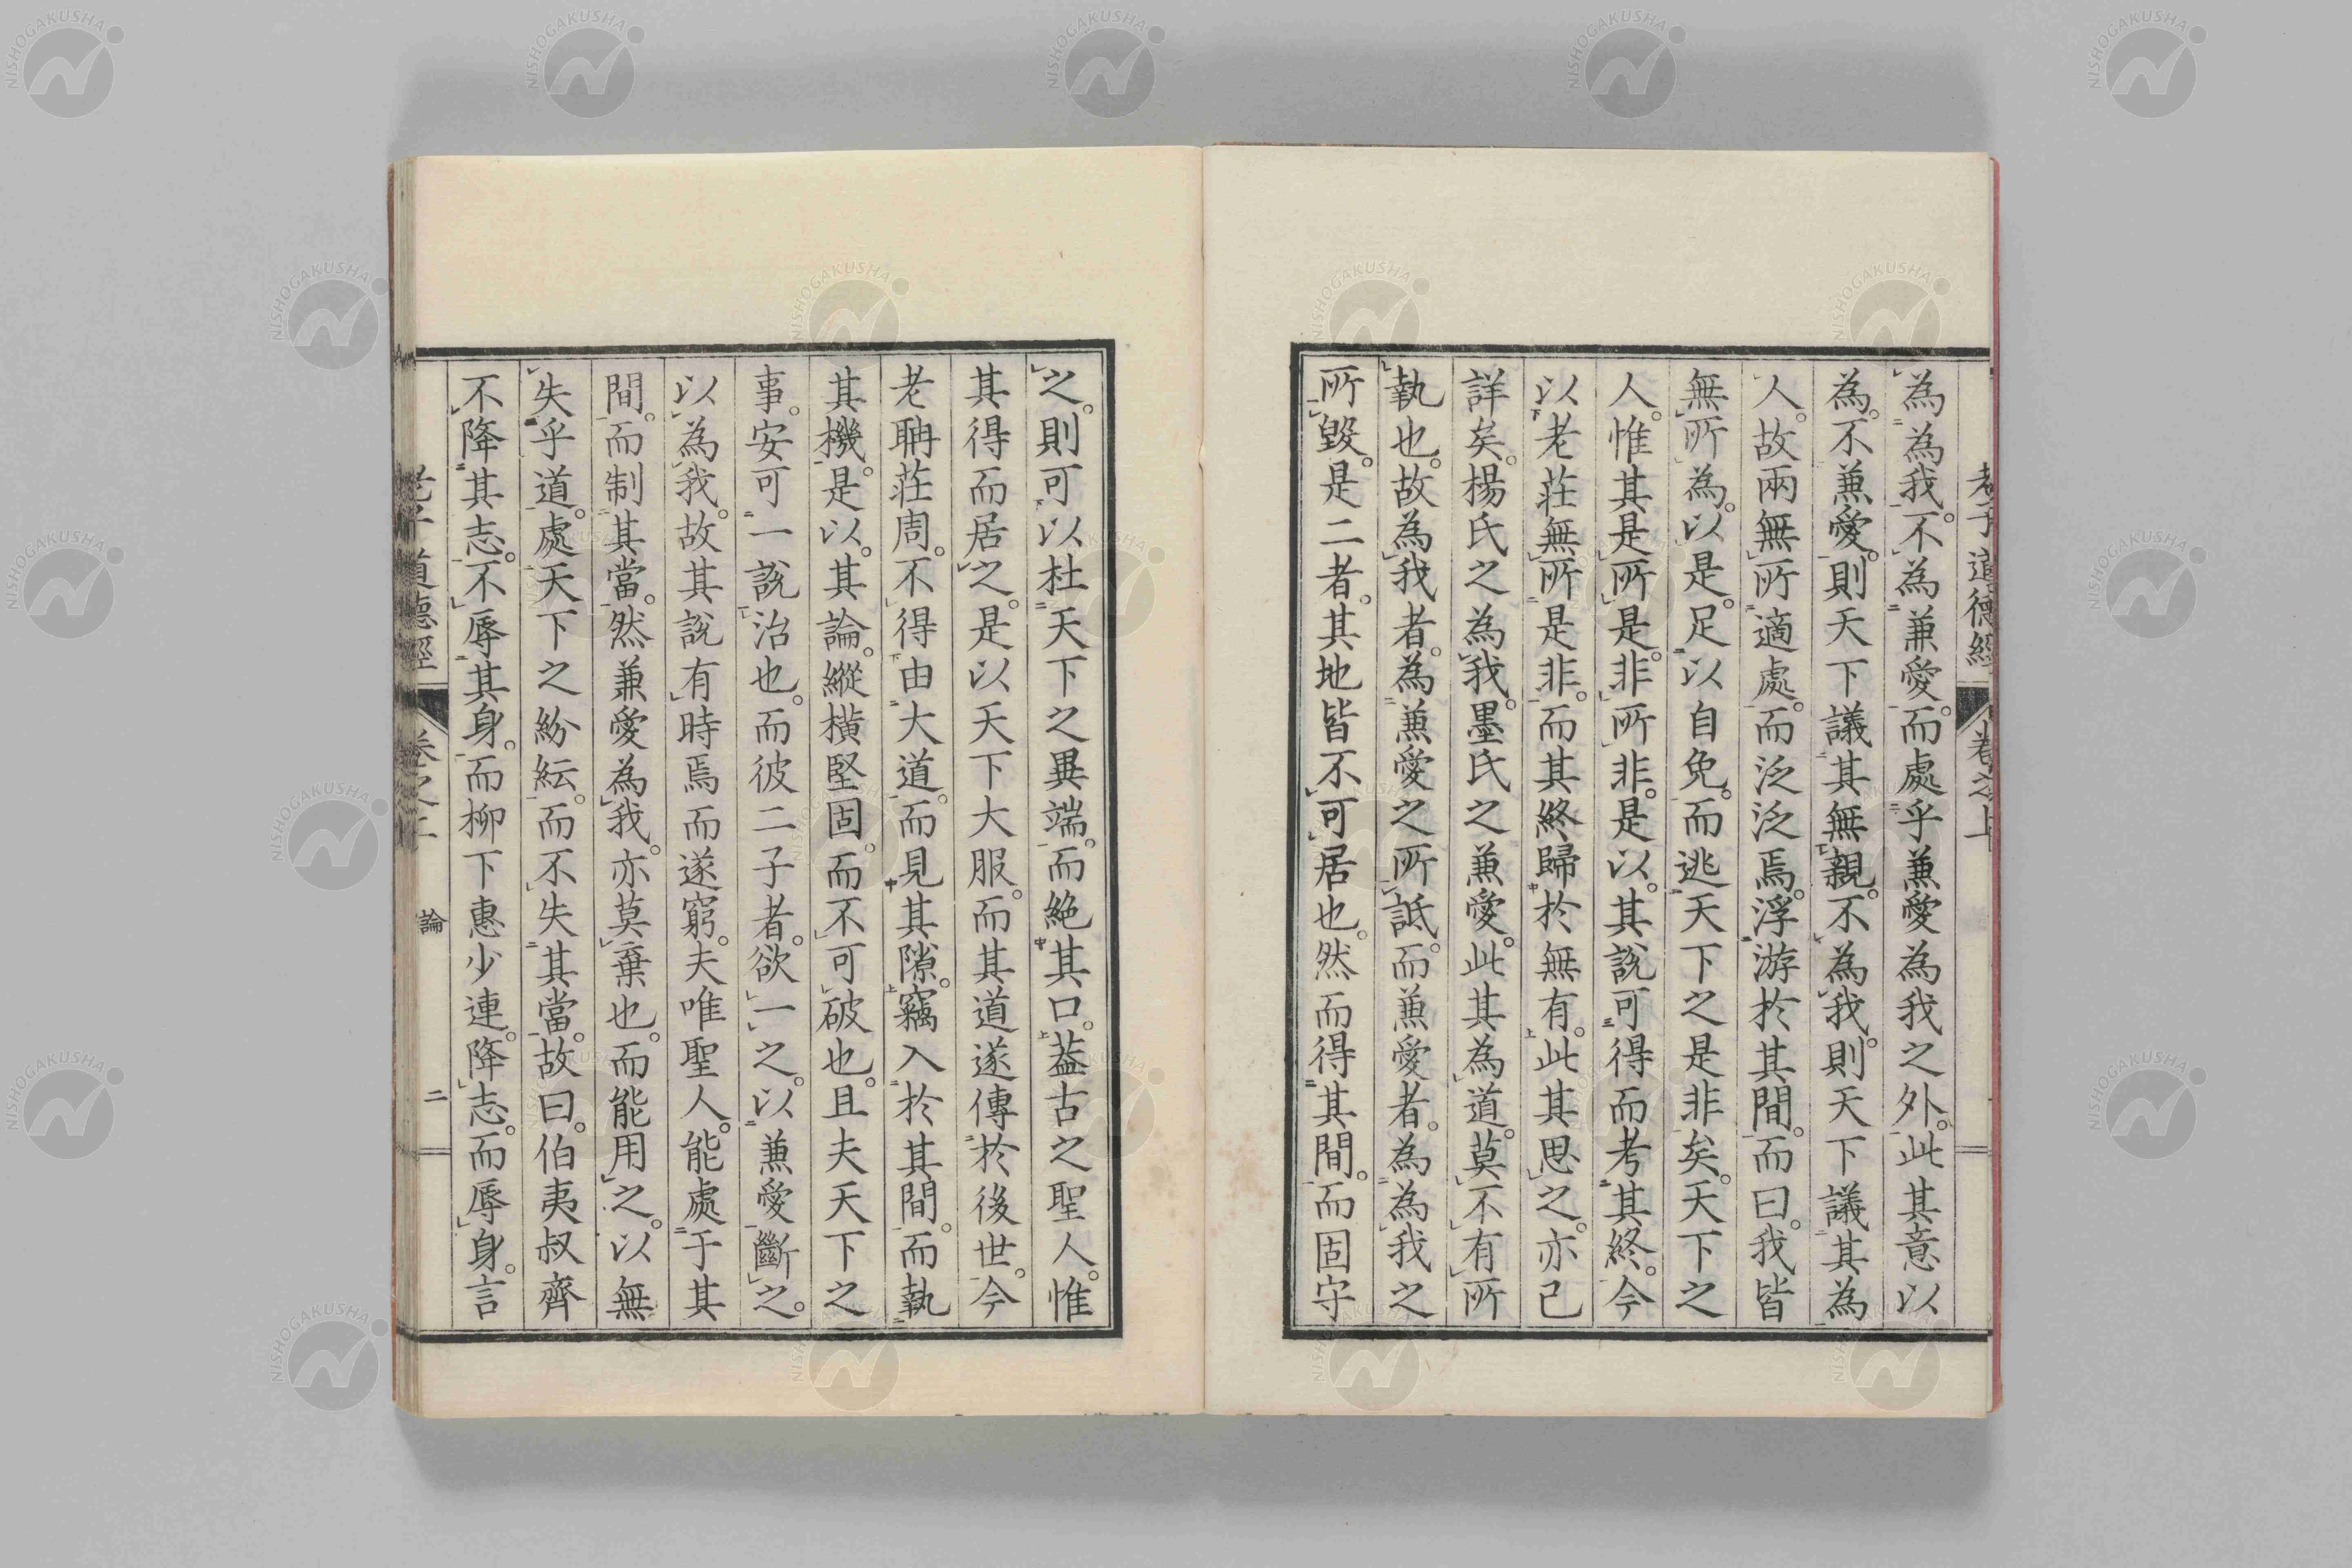 老子道德經 卷之上
為為我。不為兼愛。而處乎兼愛為我之外。此其意以
為。不兼愛。則天下議其無親。不為我。則天下議其為
人。故兩無所適處。而泛泛焉。浮游於其間。而曰。我皆
無所為。以是。足以自免。而逃天下之是非矣。天下之
人。惟其是所是。非所非。是以。其說可得而考其終。今
以老莊無所是非。而其終歸於無有。此其思之。亦已
詳矣。楊氏之為我。墨氏之兼愛。此其為道。莫不有所
執也。故為我者。為兼愛之所詆。而兼愛者。為為我之
所毀。是二者。其地皆不可居也。然而得其間。而固守
之。則可以杜天下之異端。而絕其口。蓋古之聖人。惟
其得而居之。是以天下大服。而其道遂傳於後世。今
老聃莊周。不得由大道。而見其隙。竊入於其間。而執
其機。是以。其論。縱橫堅固。而不可破也。且夫天下之
事。安可一說治也。而彼二子者。欲一之。以兼愛斷之。
以為我。故其說有時焉而遂窮。夫唯聖人。能處于其
間。而制其當。然兼愛為我。亦莫棄也。而能用之。以無
失乎道。處天下之紛紜。而不失其當。故曰。伯夷叔齊
不降其志。不辱其身。而柳下惠少連。降志。而辱身。言
老子道德經 卷之上 論 二
NISHOGAKUSHA